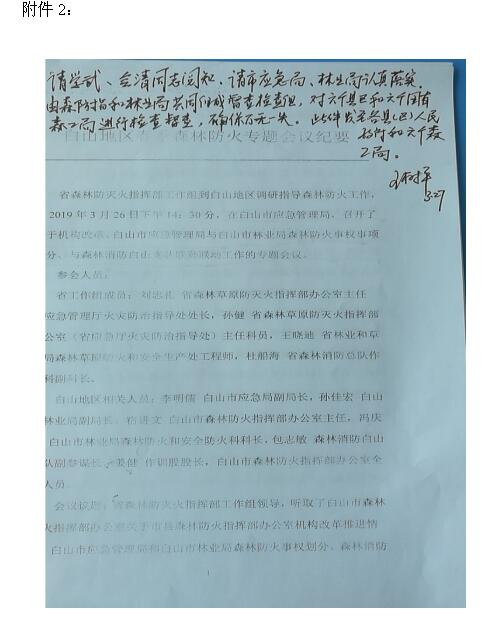 附件2：
请学武、会清同志阅知，请市应急局、林业局认真落实，
由森防指和林业局共同组成督查检查组，对六个县区和六个国有
森工局进行检查督查，确保万无一失。此件发至各县(区)人民
政府和六个森
工局。
3.27
白山地区春季森林防火专题会议纪要
省森林防灭火指挥部工作组到白山地区调研指导森林防火工作，
2019年3月26日下午14：30分，在白山市应急管理局，召开了
于机构改革，白山市应急管理局与白山市林业局森林防火事权事项
分、与森林消防白山支队联动工作的专题会议。
参会人员：
省工作组成员：刘忠礼 省森林草原防灭火指挥部办公室主任
应急管理厅火灾防治指导处处长，孙健 省森林草原防灭火指挥部
公室（省应急厅火灾防治指导处）主任科员，王晓迪 省林业和草
局森林草原防火和安全生产处工程师，杜船海 省森林消防总队作
科副科长。
白山地区相关人员：李明儒 白山市应急局副局长，孙佳宏 白山
林业局副局长，嵇讲文 白山市森林防火指挥部办公室主任，冯庆
白山市林业局森林防火和安全防火科科长，包志敏 森林消防白山
队副参谋长，姜健 作训股股长，白山市森林防火指挥部办公室全
人员。
会议议题：省森林防灭火指挥部工作组领导，听取了白山市森林
火指挥部办公室关于市县森林防火指挥部办公室机构改革推进情
白山市应急管理局和白山市林业局森林防火事权划分、森林消防
1